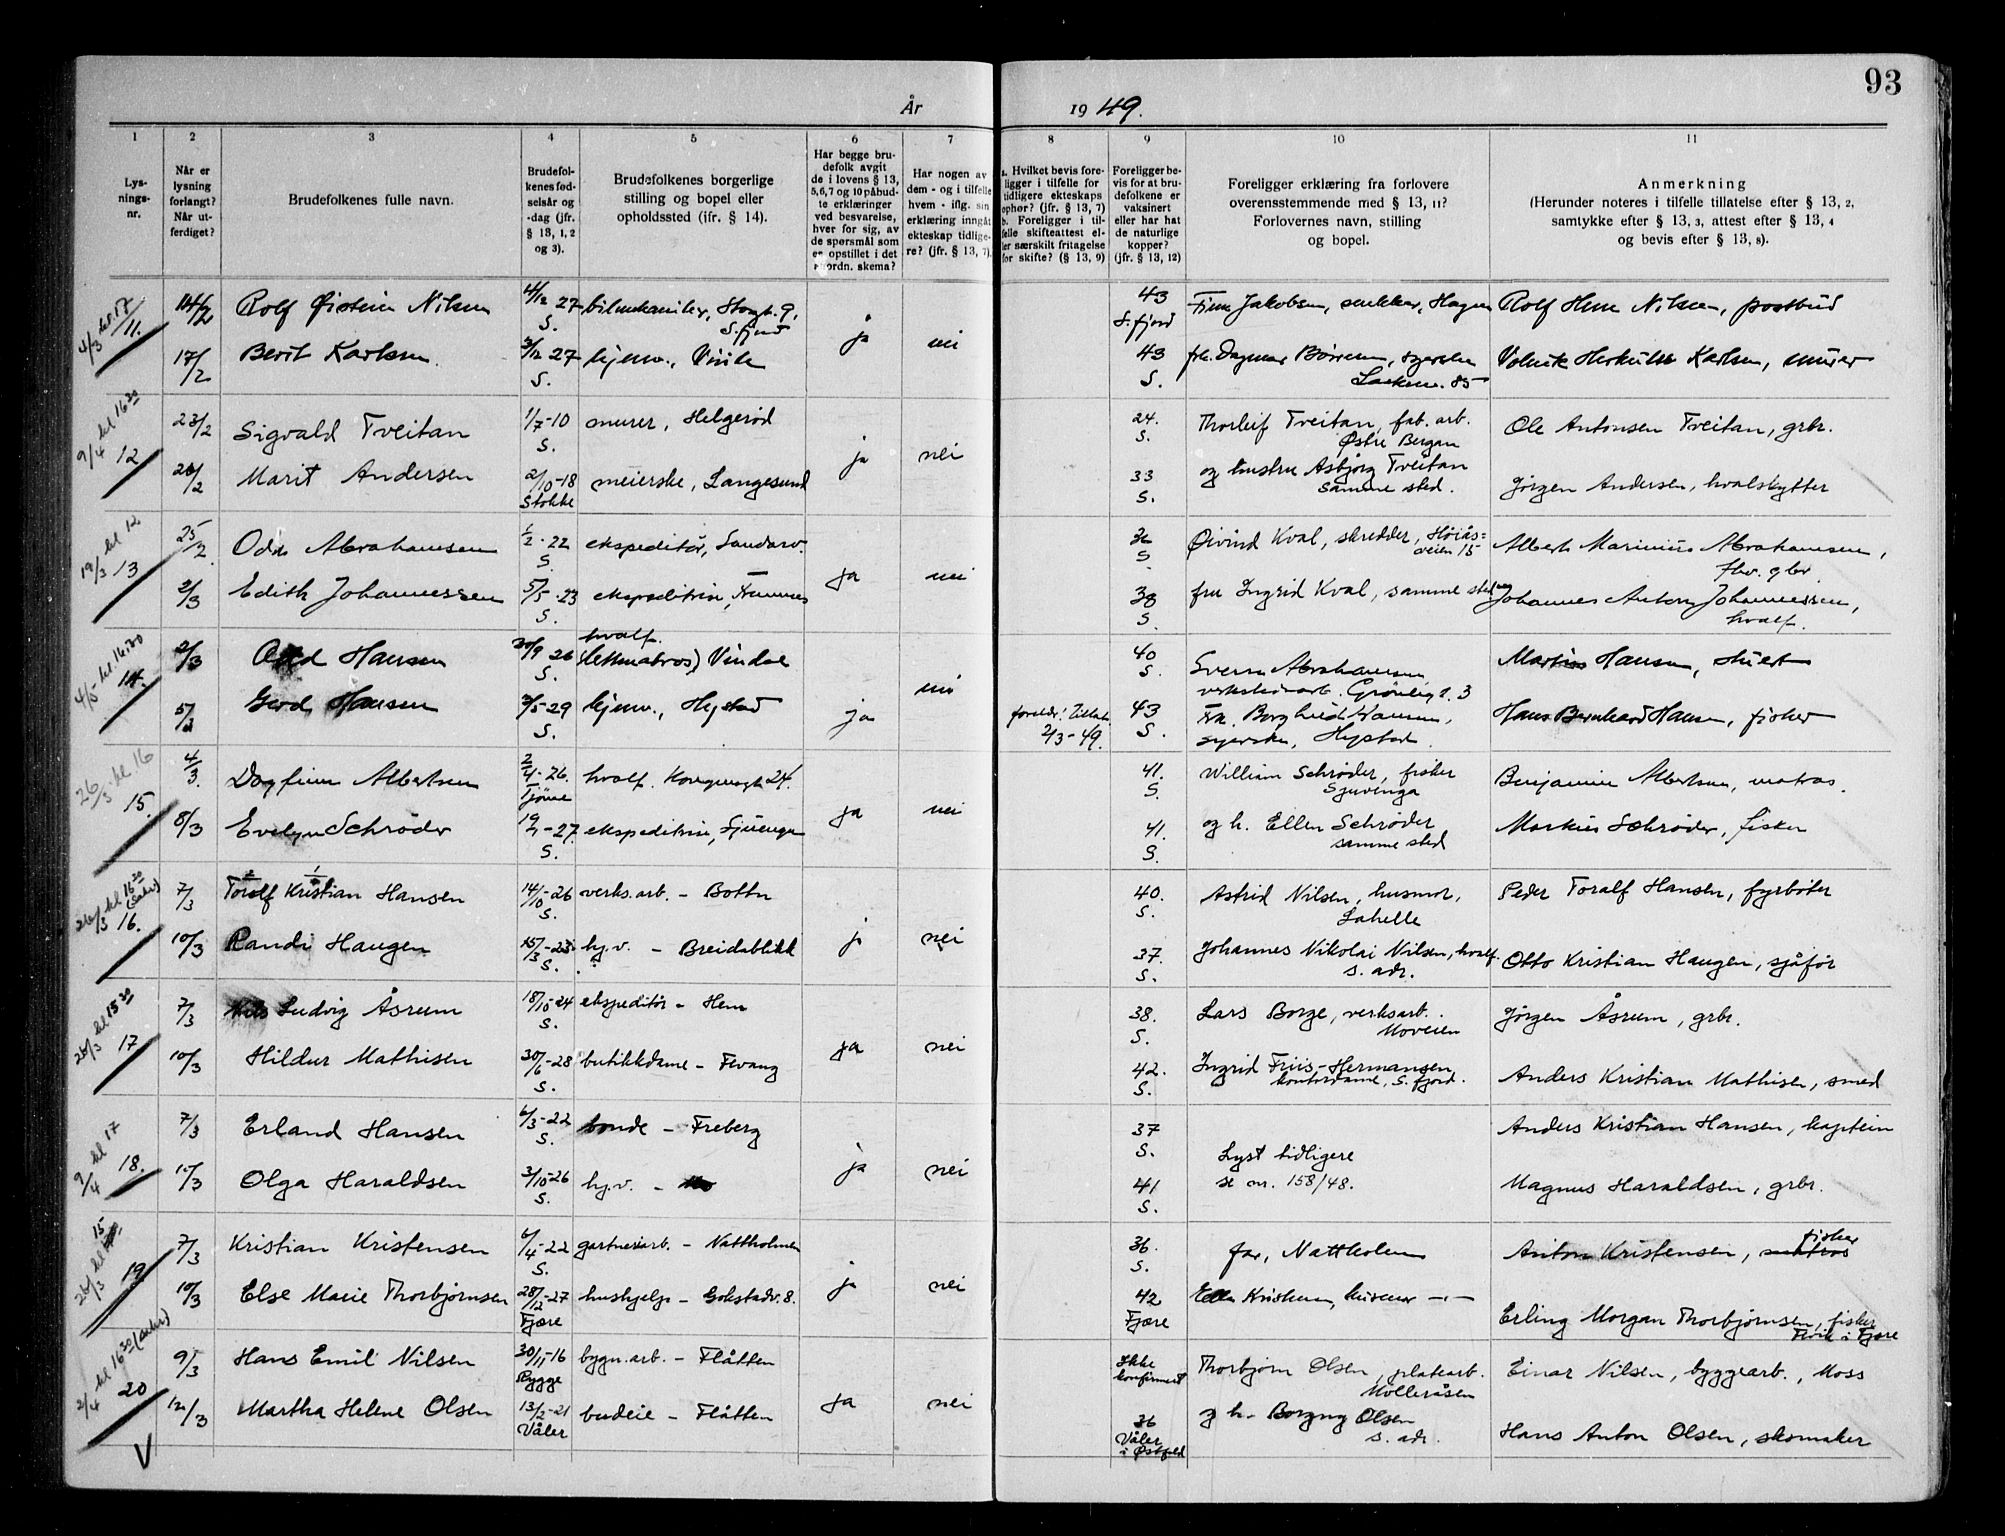 93
År 1949.
1 2 3 4 5 6 7 8 9 10 11
Lys-
nings-
nr.
Når er
lysning
forlangt?
Når ut-
ferdiget?
Brudefolkenes fulle navn.
Brudefol-
kenes fød-
selsår og
-dag (jfr.
§ 13, 1, 2
og 3).
Brudefolkenes borgerlige
stilling og bopel eller
opholdssted (jfr. § 14).
Har begge bru-
defolk avgit
de i lovens § 13,
5,6,7 og 10 påbud-
te erklæringer
ved besvarelse,
hver for sig, av
de spørsmål som
er opstillet i det
forordn. skema?
Har nogen av
dem - og i tilfelle
hvem - iflg. sin
erklæring inngått
ekteskap tidlige-
re? (jfr. § 13, 7).
a. Hvilket bevis fore-
ligger i tilfelle for
tidligere ekteskaps
ophør? (jfr. § 13, 7)
b. Foreligger i til-
felle skifteattest el-
ler særskilt fritagelse
for skifte? (§ 13, 9)
Foreligger be-
vis for at bru-
defolkene er
vaksinert
eller har hat
de naturlige
kopper?
(jfr. § 13, 12)
Foreligger erklæring fra forlovere
overensstemmende med § 13, 11?
Forlovernes navn, stilling
og bopel.
Anmerkning
(Herunder noteres i tilfelle tillatelse efter § 13, 2,
samtykke efter § 13, 3, attest efter § 13, 4
og bevis efter § 13, 8).
4/3 kl. 17 11. 14/2 Rolf Øistein Nilsen 4/12 27 S. bilmekaniker, Storgt. 9, S.fjord ja nei 43 S.fjord Finn Jakobsen, snekker, Haugen Rolf Hem Nilsen, postbud
17/2 Berit Karlsen. 3/12 27 S. hjemv., Virik 43 S. frk. Dagmar Børresen, syerske 85 Karlsen, murer
9/4 kl 16 30 12 23/2 Sigvald Tveitan 1/7-10 S. murer, Helgerød ja nei 24. S. Thorleif Tveitan, fab. arb. Østre Bergan Ole Antonsen Tveitan, grbr.
26/2 Marit Andersen 2/10-18 Stokke meierske, Langesund 33 S. og hustru Asbjørg Tveitan samme sted. Jørgen Andersen, hvalskytter
19/3 kl 12 13 25/2 Odd Abrahamsen 1/2-22 S. ekspeditør, Sandarv. ja nei 36 S. Øivind Kval, skredder, Høiås-
veien 15 Albert Marinius Abrahamsen,
fhv. gbr.
2/3 Edith Johannessen 5/5-23 S. ekspeditrise, Framnes 38 S. fru Ingrid Kval, samme sted Johannes Anton Johannessen,
hvalf.
4/5 kl 16.30 14. 2/3 Odd Hansen 30/9 26 S. hvalf.
(lettmatros) Vindal nei 40 S. Sverre Abrahamsen
verkstedarb. Grønligt. 3 Hansen,
5/3 Gerd Hansen 2/5-29 S. hjemv., Hystad ja foreldr. tillat.
2/3-49. 43 S. frk. Borghild Hansen,
syerske, Hystad. Hans Bernhard Hansen, fisker
26/3 kl 16 15. 4/3. Dagfinn Albertsen 2/4-26. Tjøme hvalf. Kongensgt 24. ja nei 41. S. William Schrøder, fisker
Sjuvenga Benjamin Albertsen, matros.
8/3 Evelyn Schrøder 19/1-27. S. ekspeditrise, Sjuenga 41. S. og h. Ellen Schrøder
samme sted Markus Schrøder, fisker
26/3 kl 16 30 16. 7/3 Toralf Kristian Hansen 14/10-26 S. verks.arb. - Botten ja nei 40. S. Astrid Nilsen, husmor,
Lahelle Peder Toralf Hansen, fyrbøter
10/3 Randi Haugen 15/3-23 S. hj.v. - Breidablikk 37. S. Johannes Nikolai Nilsen, hvalf.
s. adr. Otto Kristian Haugen, sjåfør
26/3 kl 15 30 17 7/3 Nils Ludvig Åsrum 18/10-24 S. ekspeditør - Hem ja nei 38. S. Lars Borge, verksarb.
Moveien Jørgen Åsrum, grbr.
10/3 Hildur Mathisen 30/6-28 S. butikkdame - Fevang 42. S. Ingrid Friis-Hermansen
kontordame, S.fjord. Anders Kristian Mathisen, smed
9/4 kl 17 18. 7/3 Erland Hansen 6/3-22 S. bonde - Freberg ja nei 37 S. Lyst tidligere
se nr. 158/48. Anders Kristian Hansen, kaptein
10/3 Olga Haraldsen 3/10-26 S. hj.v. - Mo 41 S. Magnus Haraldsen, grbr.
26/3 kl 15 19 7/3 Kristian Kristensen 6/4-22 S. gartneriarb. - Nattholmen ja nei 36. S. far, Nattholmen Anton Kristensen, matros fisker
10/3 Else Marie Thorbjørnsen 28/12-27 Fjære hushjelp - Gokstadv. 8. 42 Fjære Kristensen, husmor -"- Erling Morgan Thorbjørnsen, fisker
i Fjære
2/4 kl 16 30 20 9/3 Hans Emil Nilsen 30/11-16 Rygge bygn.arb. - Flåtten ja nei Ikke
konfirmert Thorbjørn Olsen, platearb.
Mølleråsen Einar Nilsen, byggearb., Moss
12/3 Martha Helene Olsen 13/2-21 Våler budeie - Flåtten 36 Våler
i Østfold og h. Borgny Olsen
s. adr. Hans Anton Olsen, skomaker
V